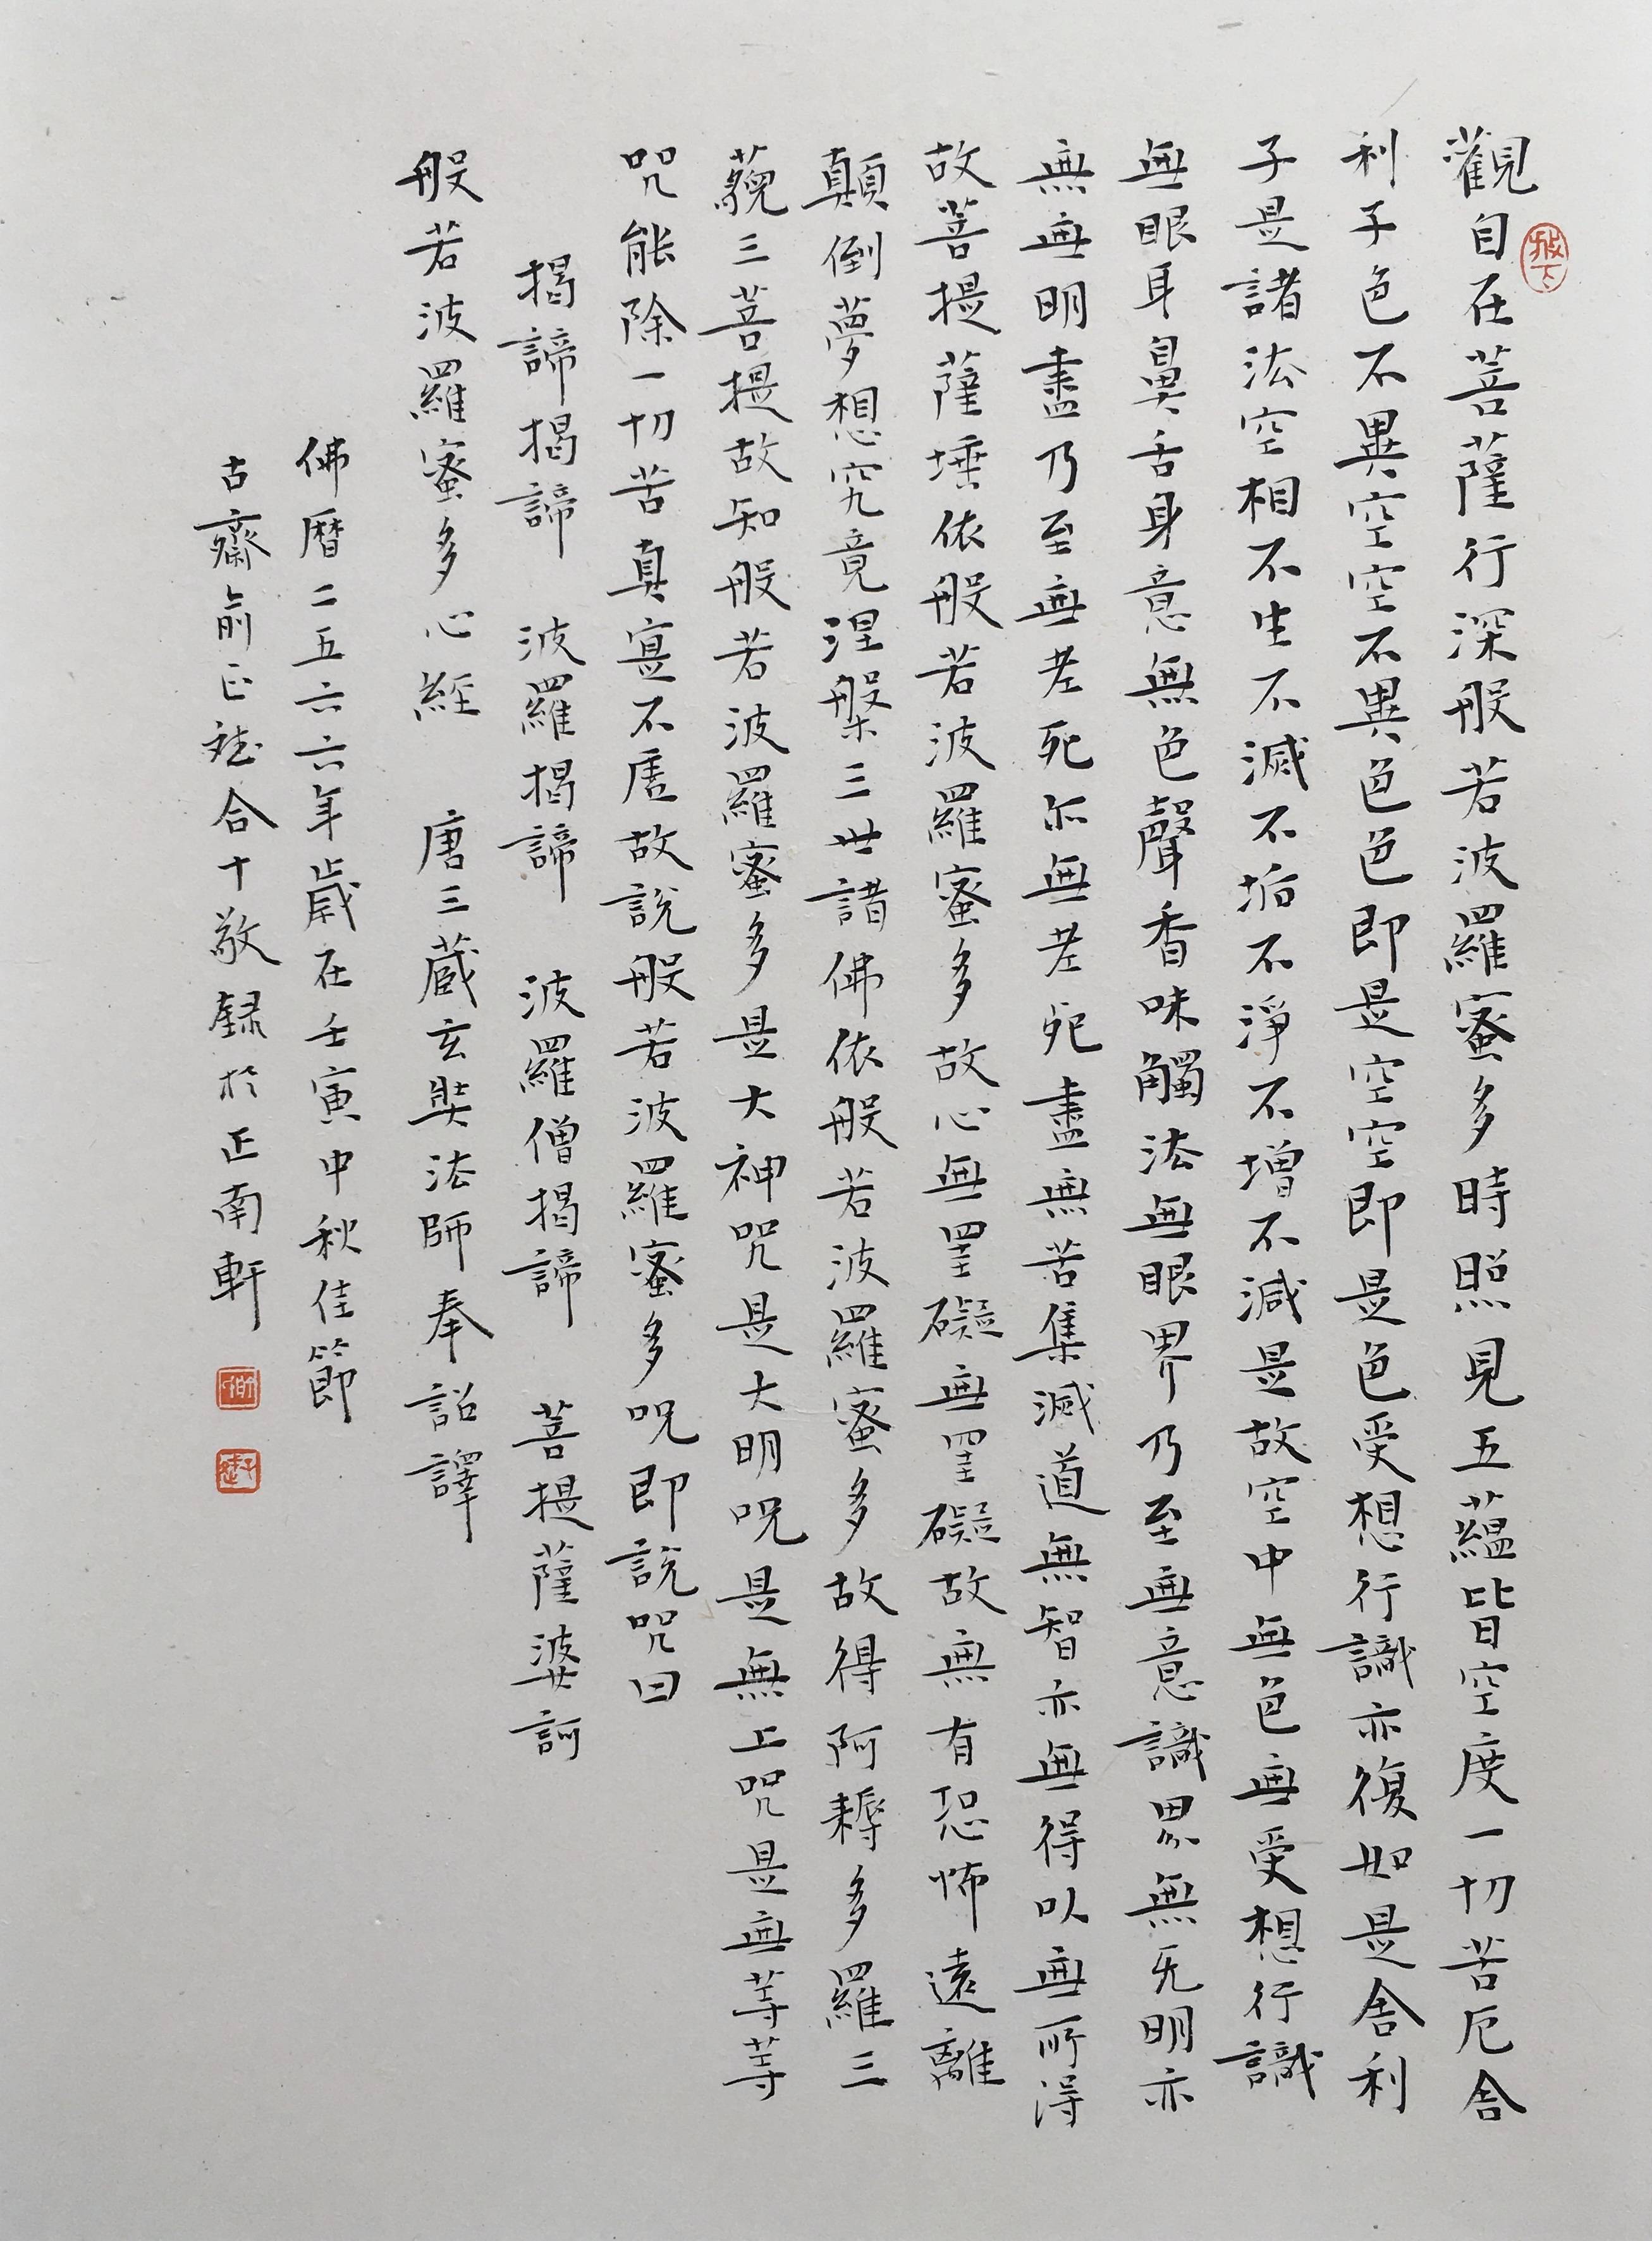 觀自在菩薩行深般若波羅蜜多時照見五蘊皆空度一切苦厄舍
利子色不異空空不異色色即是空空即是色受想行識亦復如是舍利
子是諸法空相不生不滅不垢不淨不增不減是故空中無色無受想行識
無眼耳鼻舌身意無色聲香味觸法無眼界乃至無意識界無无明亦
無無明盡乃至無老死亦無老死盡無苦集滅道無智亦無得以無所得
故菩提薩埵依般若波羅蜜多故心無罣礙無罣礙故無有恐怖遠離
顛倒夢想究竟涅槃三世諸佛依般若波羅蜜多故得阿耨多羅三
藐三菩提故知般若波羅蜜多是大神咒是大明咒是無上咒是無等等
咒能除一切苦真實不虛故說般若波羅蜜多咒即說咒曰
揭諦揭諦 波羅揭諦 波羅僧揭諦 菩提薩婆訶
般若波羅蜜多心經 唐三藏玄奘法師奉詔譯
佛曆二五六六年歲在壬寅中秋佳節
古齋俞正 合十敬録於正南軒
放下